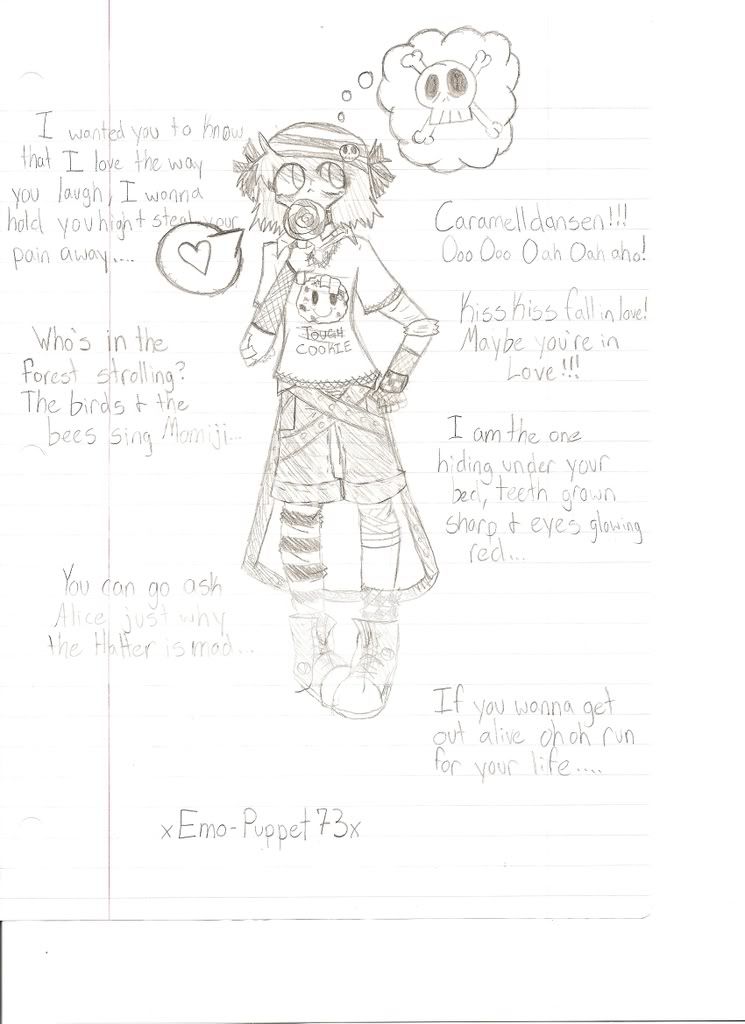 I wanted you to know
that I love the way
you laugh, I wanna
hold you high & steal your
pain away....
Caramelldansen!!!
Ooo Ooo Oah Oah aho!
Kiss Kiss fall in love!
Maybe you're in
Love!!!
TOUGH
COOKIE
Who's in the
forest strolling?
The birds & the
bees sing Momiji...
I am the one
hiding under your
bed, teeth grown
sharp & eyes glowing
red...
You can go ask
Alice just why
the Hatter is mad...
If you wanna get
out alive oh oh run
for your life....
xEmo-Puppet73x